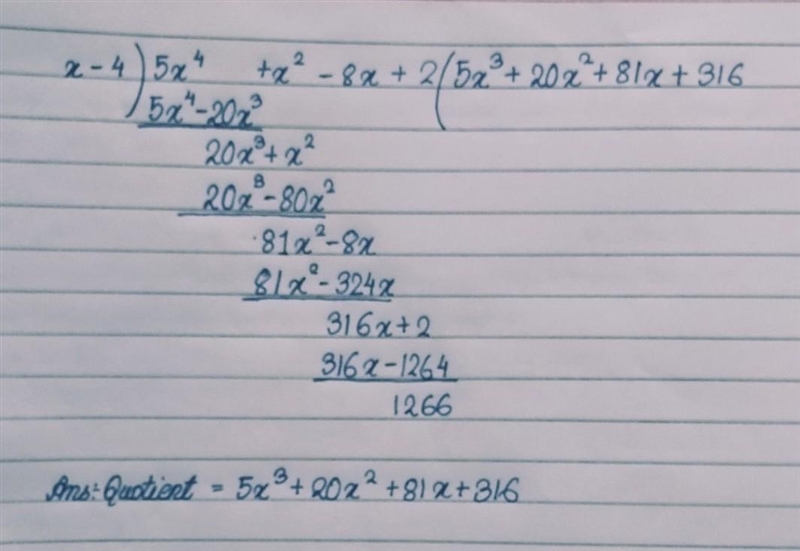 x - 4 ) 5x⁴ + x² - 8x + 2 ( 5x³ + 20x² + 81x + 316
5x⁴ - 20x³
20x³ + x²
20x³ - 80x²
81x² - 8x
81x² - 324x
316x + 2
316x - 1264
1266
Ans: Quotient = 5x³ + 20x² + 81x + 316